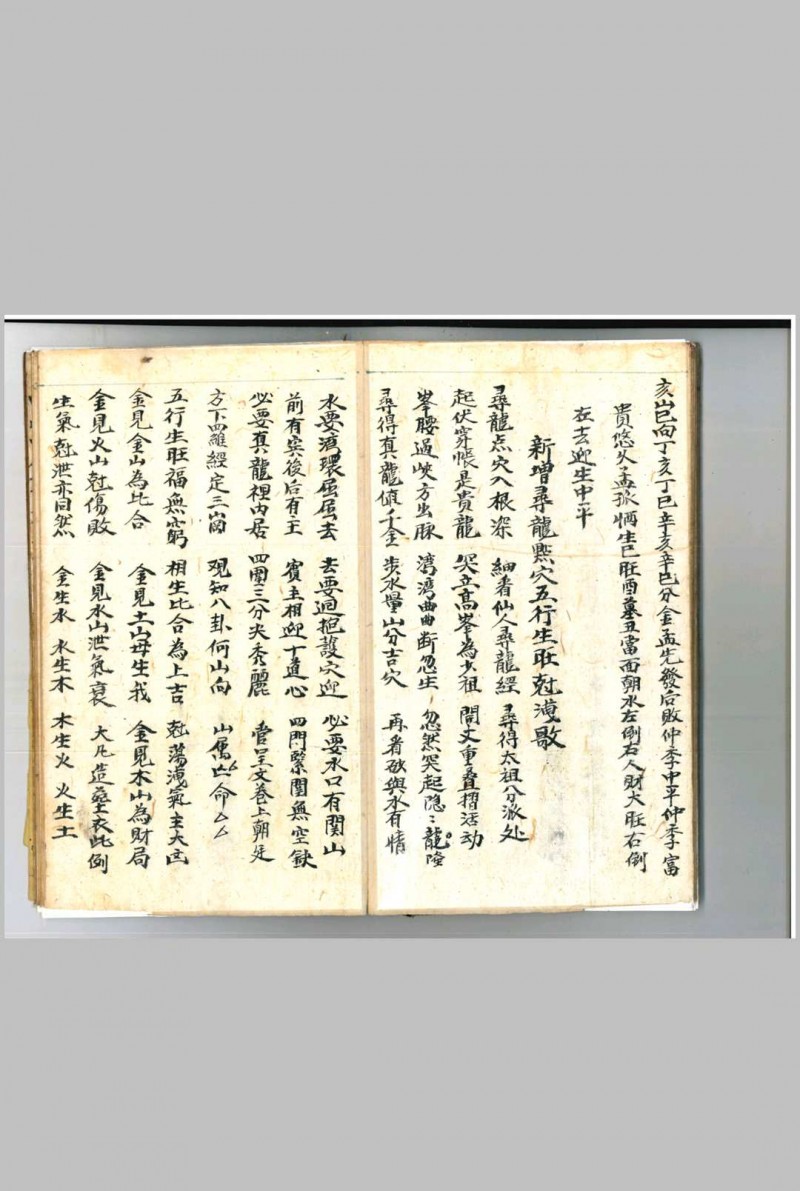 亥山巳向丁亥丁巳辛亥辛巳分金孟先發后敗仲季中平仲季富
貴悠久孟孤 生巳旺酉墓丑富面朝水左倒右人財大旺右倒
在去迎生中平
新增尋龍點穴五行生旺尅洩歌
尋龍点穴入根深 細看仙人尋龍經 尋得太祖分派处
起伏穿帳是貴龍 突立高峯為少祖 開丈重叠摺活动
峯腰過峽方出脉 湾湾曲曲断忽生 忽然突起隐〻龍隆
尋得真龍値千金 步水量山分吉穴 再看砂與水有情
水要湾環屈屈去 去要迴抱護穴迎 必要水口有関山
前有宾後后有主 賓主相迎十道心 四門緊閉無空缺
必要真龍裡内居 四圍三分尖秀麗 官呈文卷上朝廷
方下羅經定三凶 观知八卦何山向 山属亾命厶厶
五行生旺福無窮 相生比合為上吉 尅蕩洩氣主大凶
金見金山為比合 金見土山母生我 金見木山為財局
金見火山尅傷敗 金見水山泄氣衰 大凡造塟衣此例
生氣尅泄亦同然 金生水 水生木 木生火 火生土